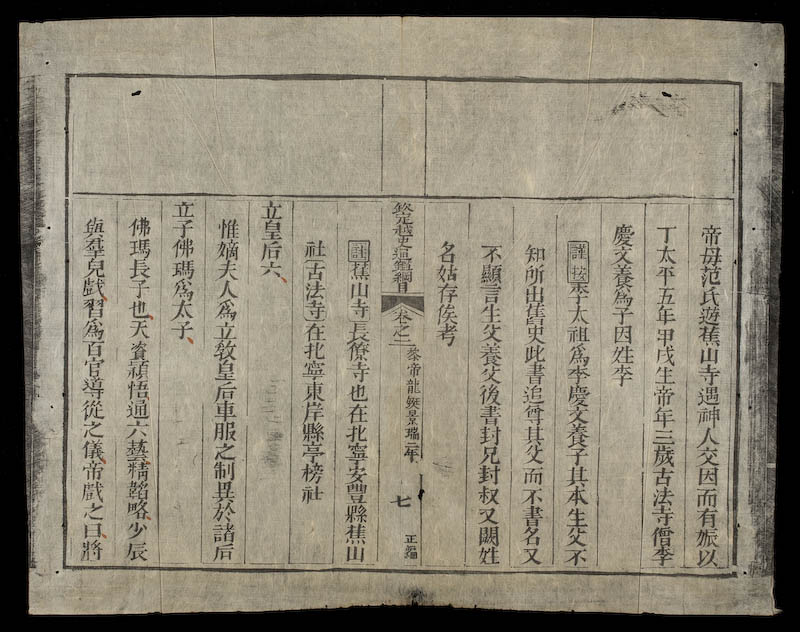 帝母范氏遊蕉山寺遇神人交因而有娠以
丁太平五年甲戌生帝年三歲古法寺僧李
慶文養爲子因姓李
謹按李太祖爲李慶文養子其本生父不
知所出舊史此書追尊其父而不書名又
不顯言生父養父後書封兄封叔又闕姓
名姑存俟考
欽定越史通鑑綱目 卷之二 黎帝龍鋌景瑞二年 七 正編
註蕉山寺長僚寺也在北寧安豐縣蕉山
社古法寺在北寧東岸縣亭榜社
立皇后六
惟嫡夫人爲立敎皇后車服之制異於諸后
立子佛瑪爲太子
佛瑪長子也天資頴悟通六藝精韜略少辰
與羣兒戲習爲百官導從之儀帝戲之曰將